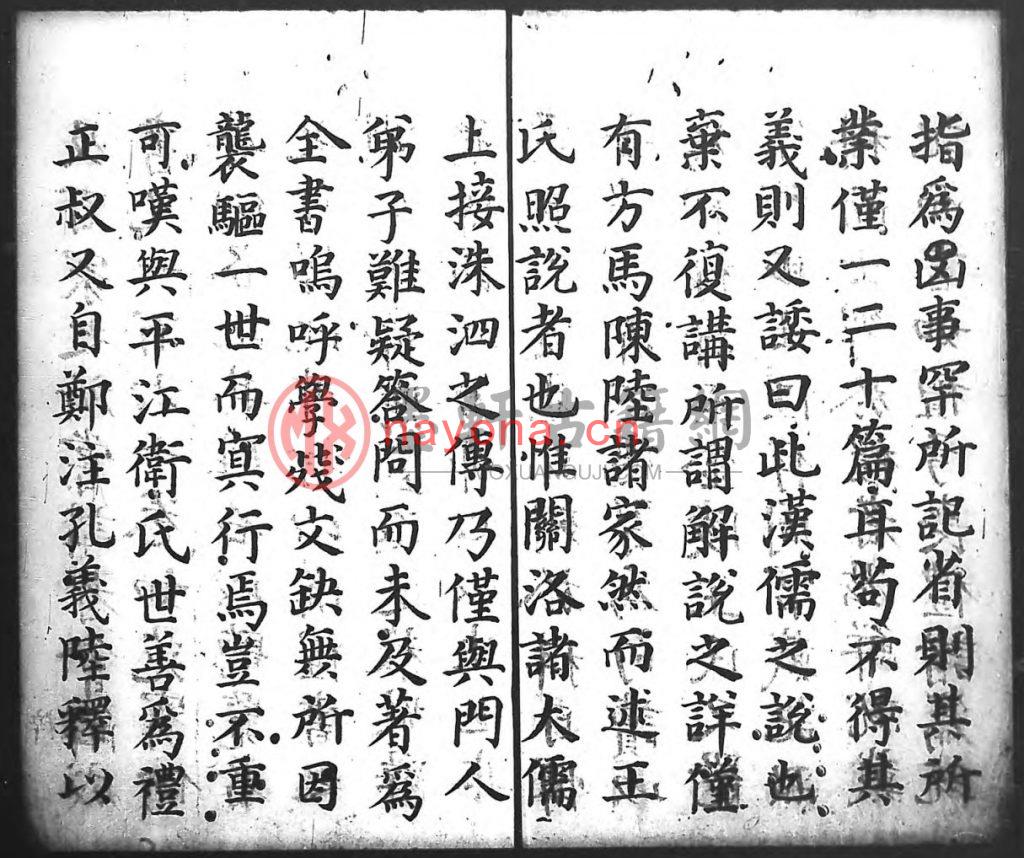 指爲凶事罕所記省則其所
業僅一二十篇耳苟不得其
義則又諉曰此漢儒之說也
棄不復講所謂解說之詳僅
有方馬陳陸諸家然而述王
氏照說者也惟關洛諸大儒
上接洙泗之傳乃僅與門人
弟子難疑答問而未及著爲
全書嗚呼學殘文缺無所因
襲驅一世而冥行焉豈不重
可嘆與平江衛氏世善爲禮
正叔又自鄭注孔義陸釋以
nayona.cn